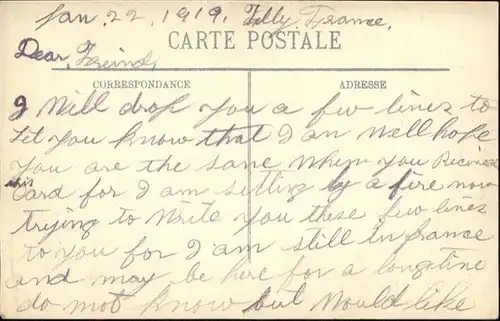 Jan. 22, 1919, Tilly, France,
CARTE POSTALE
Dear, Freind,
CORRESPONDANCE ADRESSE
I Will drop you a few lines to
Let you know that I am Well hope
you are the same When you Recived
this
Card for I am sitting by a fire now
trying to Write you these few lines
to you for I am still in france
and may be here for a long time
do mot know but Would like